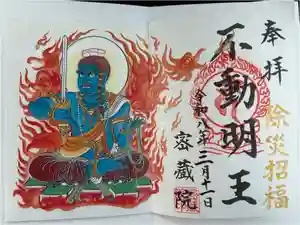 奉拝
除災招福
不動明王
令和八年三月十一日
密蔵院